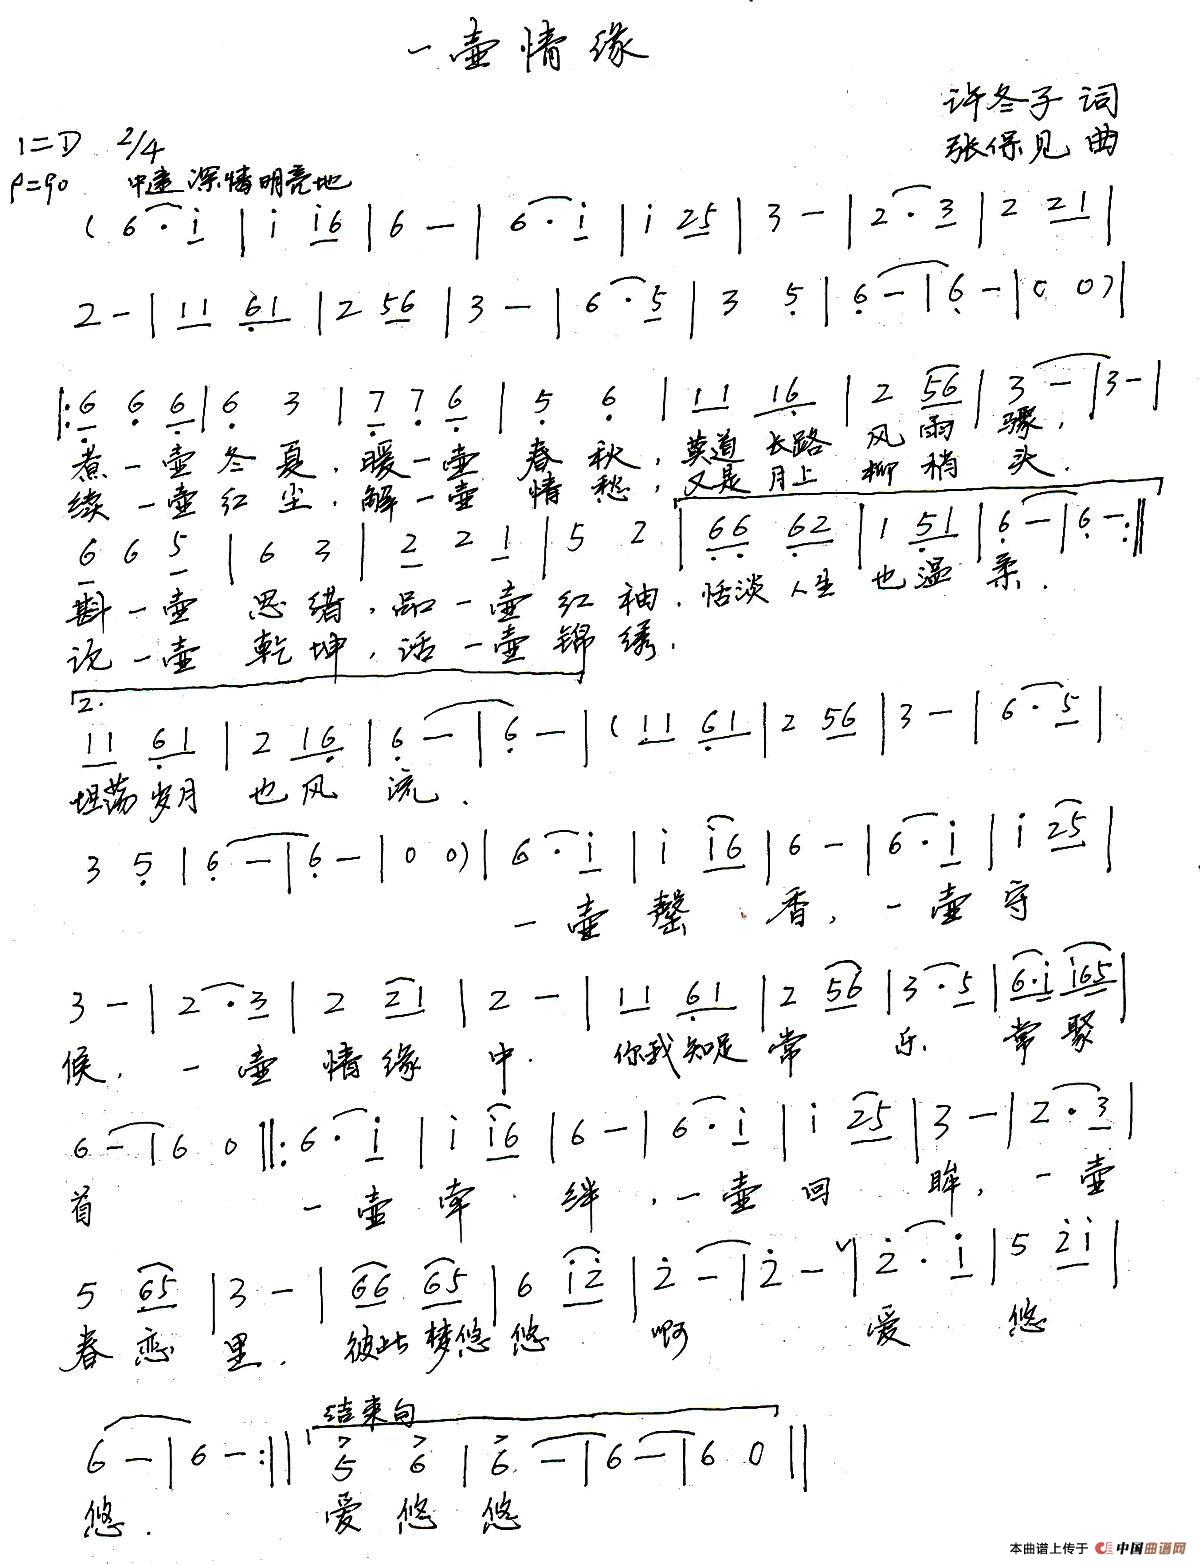 一壶情缘
许冬子 词
1=D 2/4
张保见 曲
♩=90 中速 深情明亮地
( 6· i | i i6 | 6 - | 6· i | i 25 | 3 - | 2· 3 | 2 21 |
2 - | 11 61 | 2 56 | 3 - | 6· 5 | 3 5 | 6 - | 6 - | 0 0) |
|: 6 6 6 | 6 3 | 7 7 6 | 5 6 | 11 16 | 2 56 | 3 - | 3 - |
煮一壶冬夏,暖一壶春秋,莫道长路风雨骤,
续一壶红尘,解一壶情愁,又是月上柳稍头.
6 6 5 | 6 3 | 2 2 1 | 5 2 | 66 62 | 1 51 | 6 - | 6 - :||
斟一壶思绪,品一壶红袖.恬淡人生也温柔.
说一壶乾坤,话一壶锦绣.
2.
11 61 | 2 16 | 6 - | 6 - | ( 11 61 | 2 56 | 3 - | 6· 5 |
坦荡岁月也风流.
3 5 | 6 - | 6 - | 0 0) | 6· i | i i6 | 6 - | 6· i | i 25 |
一壶馨香,一壶守
3 - | 2· 3 | 2 21 | 2 - | 11 61 | 2 56 | 3· 5 | 6·i i65 |
候.一壶情缘中.你我知足常乐.常聚
6 - | 6 0 ||: 6· i | i i6 | 6 - | 6· i | i 25 | 3 - | 2· 3 |
首 一壶牵绊,一壶回眸,一壶
5 65 | 3 - | 66 65 | 6 i2 | 2 - | 2 - ∨| 2· i | 5 2i |
春恋里.彼此梦悠悠 啊 爱悠
结束句
6 - | 6 - :|| 5 6 | 6 - | 6 - | 6 0 ||
悠. 爱悠悠
本曲谱上传于 中国曲谱网